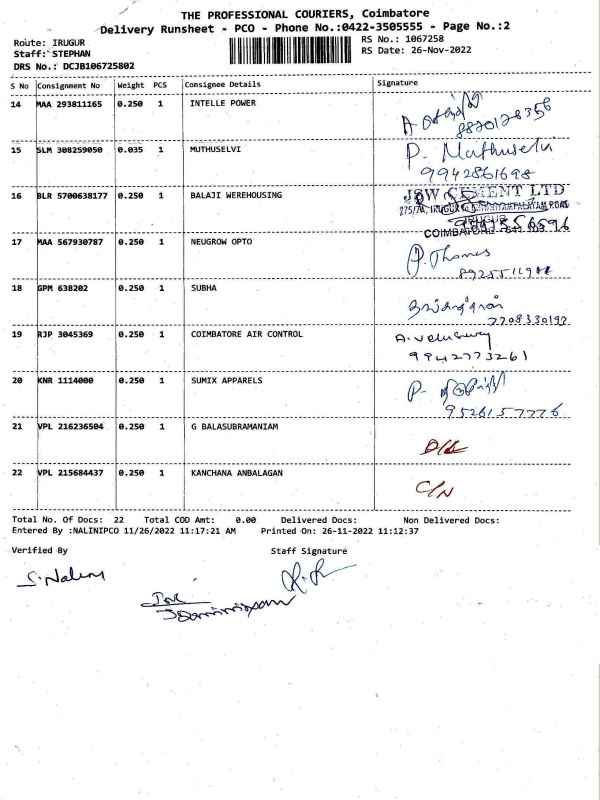 THE PROFESSIONAL COURIERS, Coimbatore
Delivery Runsheet - PCO - Phone No.:0422-3505555 - Page No.:2
Route: IRUGUR RS No.: 1067258
Staff: STEPHAN RS Date: 26-Nov-2022
DRS No.: DCJB106725802
S No Consignment No Weight PCS Consignee Details Signature
14 MAA 293811165 0.250 1 INTELLE POWER
15 SLM 308259050 0.035 1 MUTHUSELVI P. Muthuselvi
9942861698
16 BLR 5700638177 0.250 1 BALAJI WEREHOUSING JSW CEMENT LTD
COIMBATORE
17 MAA 567930787 0.250 1 NEUGROW OPTO P. Thomas
18 GPM 638202 0.250 1 SUBHA
19 RJP 3045369 0.250 1 COIMBATORE AIR CONTROL A. Veluswamy
9942773261
20 KNR 1114000 0.250 1 SUMIX APPARELS P.
9526157776
21 VPL 216236504 0.250 1 G BALASUBRAMANIAM D/L
22 VPL 215684437 0.250 1 KANCHANA ANBALAGAN C/N
Total No. Of Docs: 22 Total COD Amt: 0.00 Delivered Docs: Non Delivered Docs:
Entered By :NALINIPCO 11/26/2022 11:17:21 AM Printed On: 26-11-2022 11:12:37
Verified By Staff Signature
S. Nalini